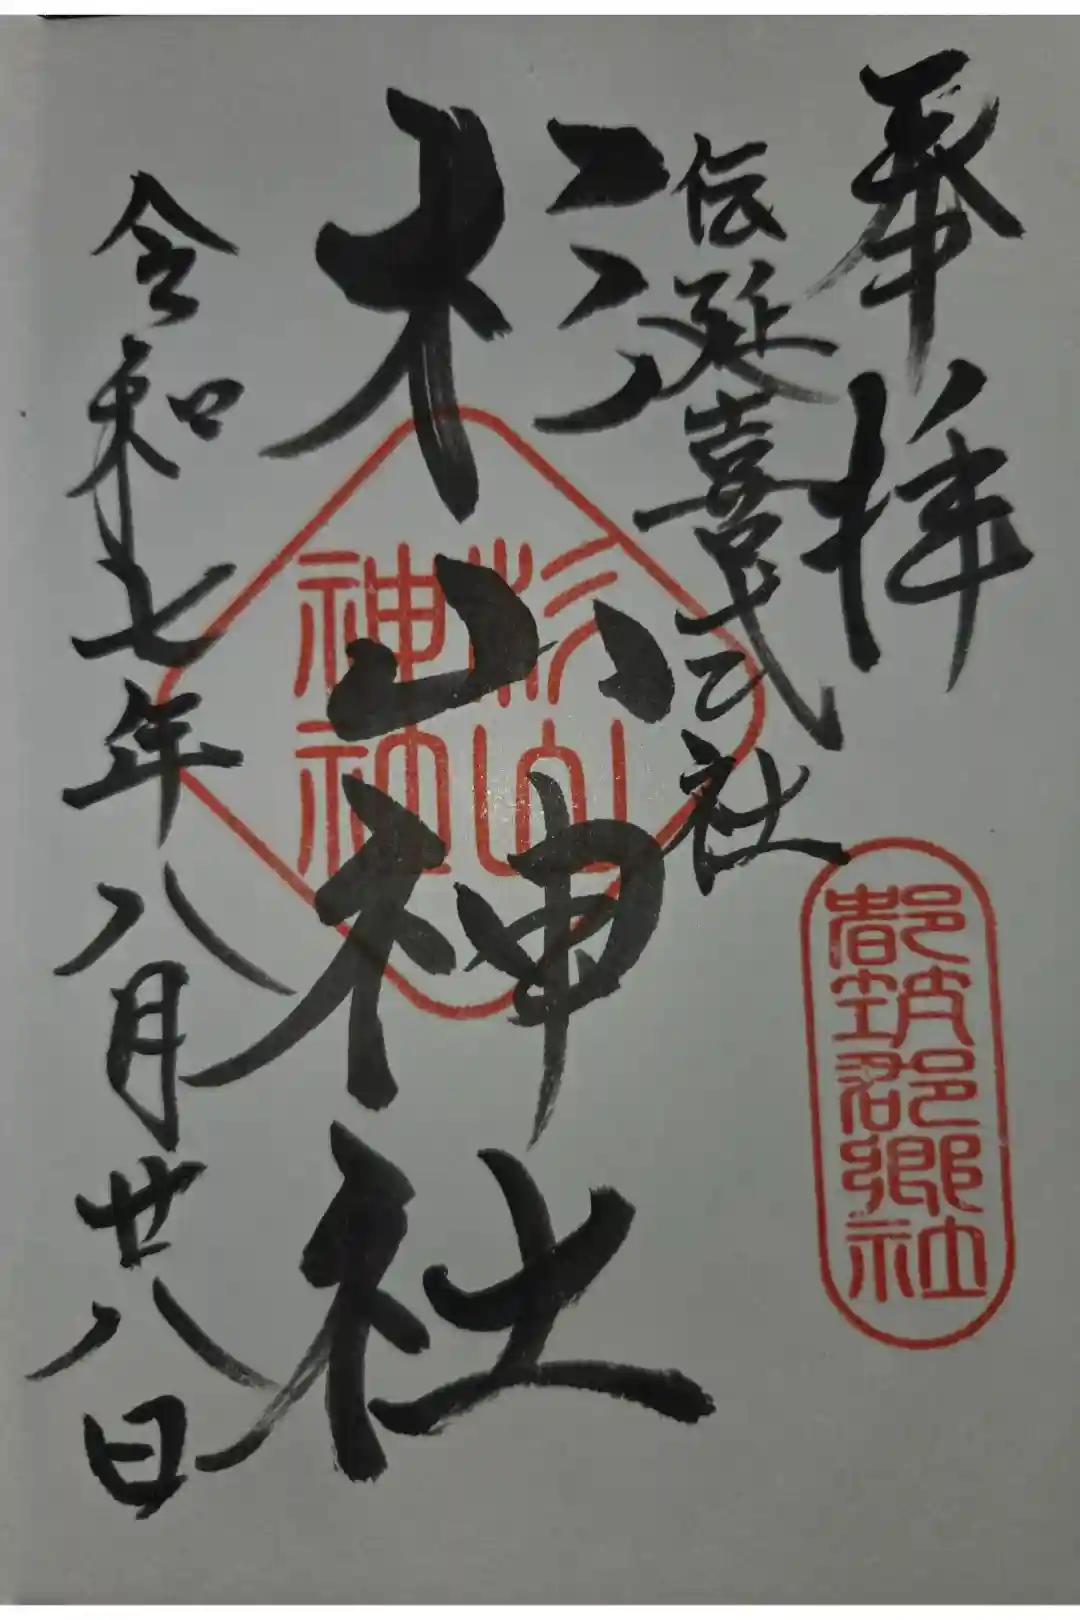 奉拝
伝延喜式社
都筑郡郷社
杉山神社
杉山神社
令和七年八月廿八日